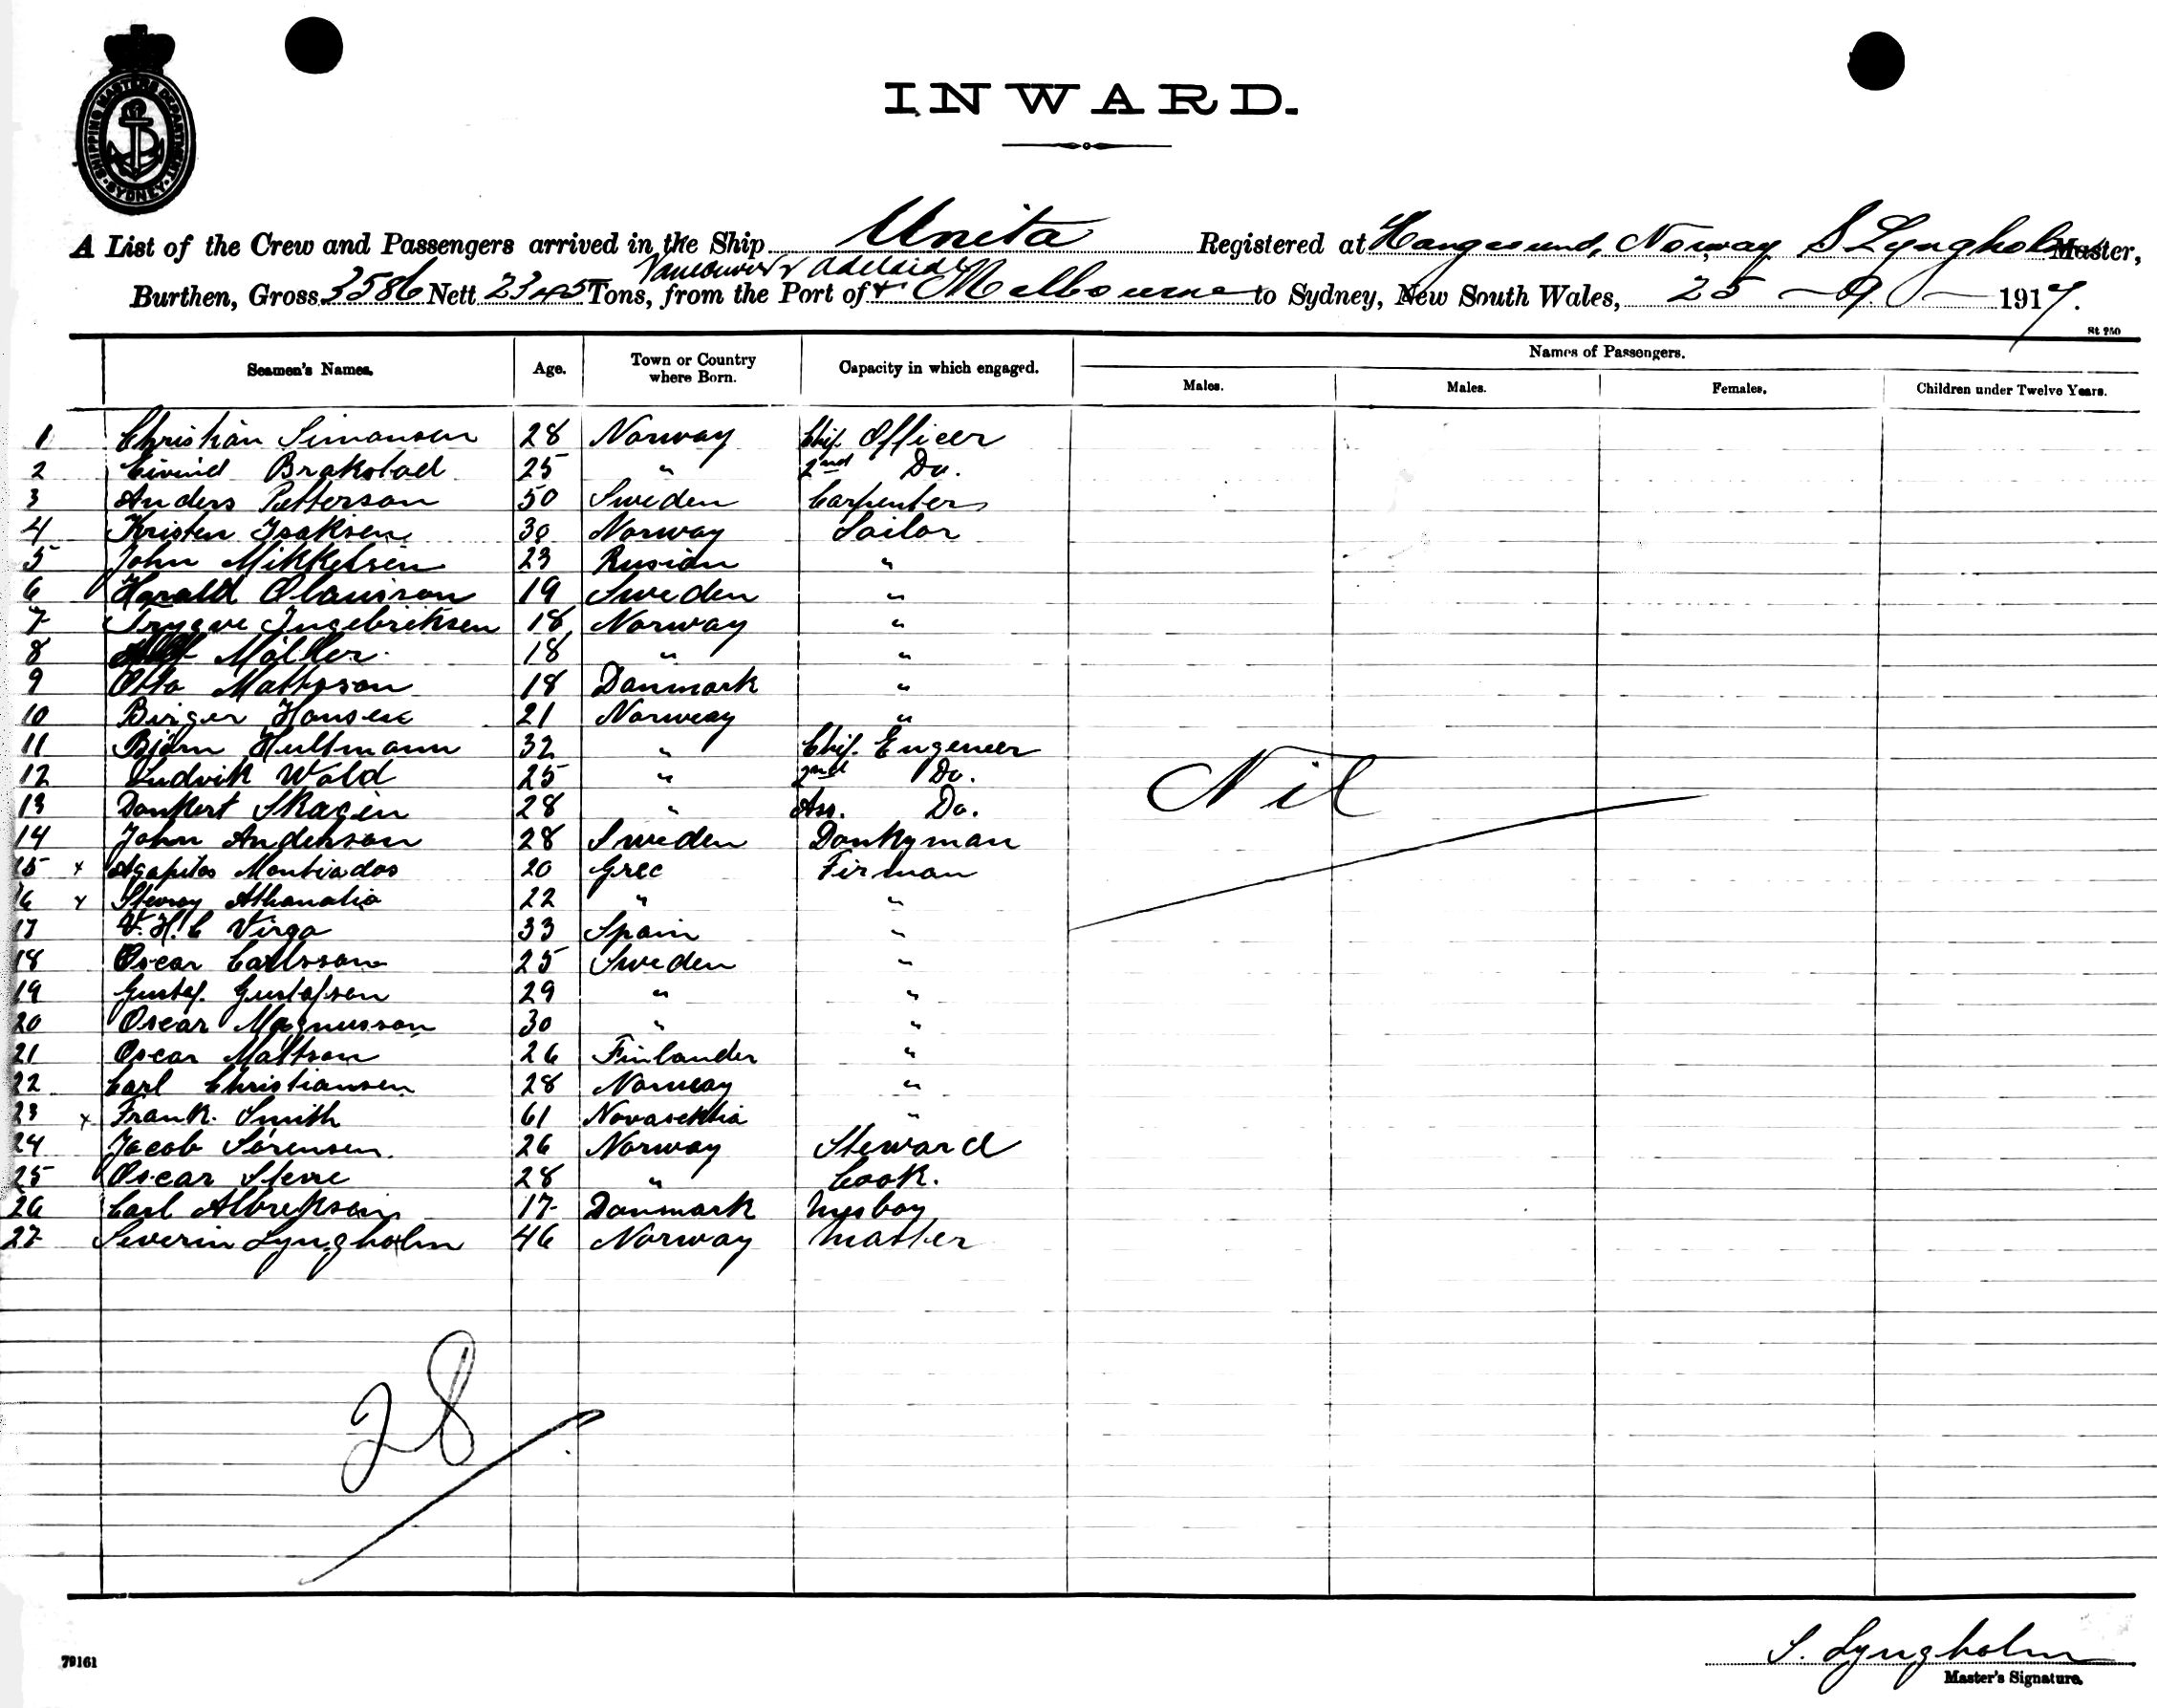 SHIPPING MASTERS DEPARTMENT SYDNEY
INWARD.
A List of the Crew and Passengers arrived in the Ship Unita Registered at Haugesund, Norway S Lyngholm Master,
Vancouver & Adelaide
Burthen, Gross 3586 Nett 2345 Tons, from the Port of & Melbourne to Sydney, New South Wales, 25 - 9 - 1917.
St 250
Seamen's Names. Age. Town or Country where Born. Capacity in which engaged. Names of Passengers.
Males. Males. Females. Children under Twelve Years.
1 Christian Simonsen 28 Norway Chif. Officer
2 Eivind Brakstad 25 " 2nd Do.
3 Anders Petterson 50 Sweden Carpenter
4 Kristen Isaksen 30 Norway Sailor
5 John Mikkelsen 23 Rusian "
6 Harald Olausson 19 Sweden "
7 Trygve Ingebriktsen 18 Norway "
8 Möller 18 " "
9 Otto Mattsson 18 Danmark "
10 Birger Hansen 21 Norway "
11 Björn Hultmann 32 " Chif. Engeneer
12 Ludvik Wold 25 " 2nd Do.
13 Dankert Skagen 28 " Ass. Do.
14 John Anderson 28 Sweden Donkyman
15 x Agapitos Montiados 20 Grec Firman
16 x Athanatio 22 " "
17 V. H. C Virgo 33 Spain "
18 Oscar Carlsson 25 Sweden "
19 Gustaf. Gustafsen 29 " "
20 Oscar Magnusson 30 " "
21 Oscar Mattson 26 Finlander "
22 Carl Christiansen 28 Norway "
23 x Frank. Smith 61 Novasektia "
24 Jacob Sørensen. 26 Norway Steward
25 Oscar Stene 28 " Cook.
26 Carl Albreksen 17 Danmark Mesboy
27 Severin Lyngholm 46 Norway Master
Nil
28
S. Lyngholm
79161 Master's Signature.